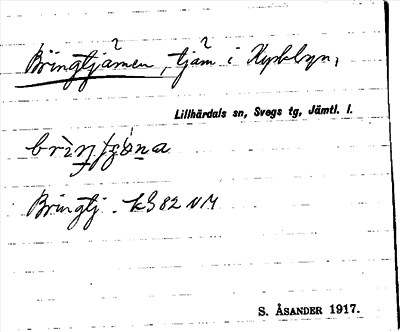 Bringtjärnen, tjärn i Kyrkbyn,
Lillhärdals sn, Svegs tg, Jämtl. l.
Bringtj. kS 82 NM
S. ÅSANDER 1917.